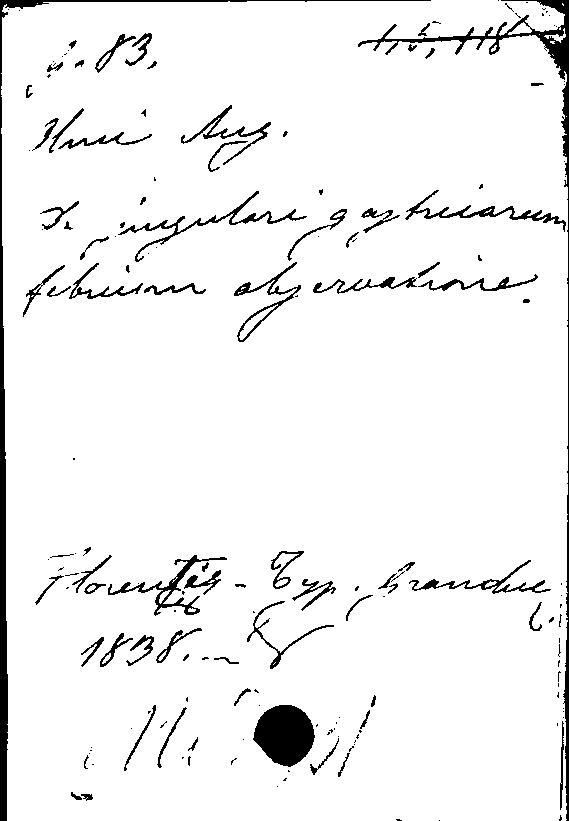 83.
1, 5, 118
Aug.
De singulari gastricarum
febrium observatione.
Florentiis - Typ. Granduc.
1838. - 8